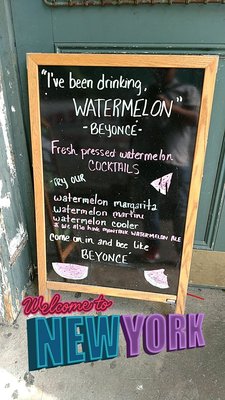 "I've been drinking,
WATERMELON"
-BEYONCÉ-
Fresh pressed watermelon
COCKTAILS
-try our
watermelon margarita
watermelon martini
watermelon cooler
* we also have MONTAUK WATERMELON ALE
come on in and bee like
BEYONCÉ
Welcome to
NEW YORK